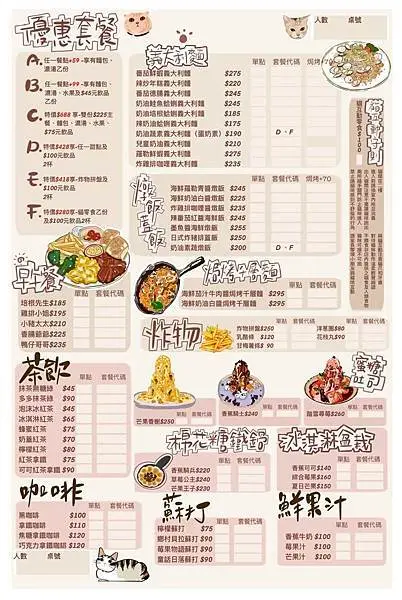 優惠套餐
人數 桌號
A. 任一餐點+59 -享有麵包、
濃湯乙份
B. 任一餐點+99 -享有麵包、
濃湯、水果及$45元飲品
乙份
C. 特價$688 享-雙份$225主
餐、麵包、濃湯、水果、
$75元飲品
D. 特價$428享-任一甜點及
$100元飲品
2杯
E. 特價$418享-炸物拼盤及
$100元飲品
2杯
F. 特價$280享-貓零食乙份
及$100元飲品2杯
義大利麵
單點 套餐代碼 焗烤+70
番茄鮮蝦義大利麵 $275
辣炒年糕義大利麵 $220
番茄德腸義大利麵 $245
奶油鮭魚蛤蜊義大利麵 $265
奶油培根蛤蜊義大利麵 $265
辣奶油蛤蜊義大利麵 $175
奶油蔬素義大利麵（蛋奶素） $190 D、F
兒童奶油義大利麵 $210
羅勒鮮蝦義大利麵 $275
炸雞排咖哩義大利麵 $235
貓互動零食$100
燉飯蓋飯
單點 套餐代碼 焗烤+70
海鮮羅勒青醬燉飯 $245
海鮮奶油白醬燉飯 $225
炸雞排咖哩蓋飯 $235
辣番茄紅醬海鮮飯 $245
墨魚醬海鮮燉飯 $255
日式炸豬排蓋飯 $250
奶油素蔬燉飯 $200 D、F
早餐
單點 套餐代碼
培根先生$185
雞排小姐$195
小豬太太$210
香腸爺爺$225
鴨仔哥哥$235
焗烤千層麵
單點 套餐代碼
海鮮茄汁牛肉醬焗烤千層麵 $295
海鮮奶油白醬焗烤千層麵 $295
炸物
單點 套餐代碼 單點 套餐代碼
炸物拼盤$250 洋蔥圈$80
乳酪條 $120 花枝丸$90
甘梅薯條 $90
茶飲
單點 套餐代碼
抹茶無糖綠 $45
多多抹茶綠 $90
泡沫冰紅茶 $45
冰淇淋紅茶 $65
蜂蜜紅茶 $75
奶蓋紅茶 $70
檸檬紅茶 $80
紅茶拿鐵 $75
可可紅茶拿鐵 $90
單點 套餐代碼
芒果香榭$250
單點 套餐代碼
香蕉騎士$240
單點 套餐代碼
踏雪尋莓$260
棉花糖鐵鍋
單點 套餐代碼
香蕉騎兵$220
草莓公主$240
芒果王子$230
冰淇淋盆栽
單點 套餐代碼
香蕉可可$140
綜合莓果$160
夏日芒果$150
咖啡
單點 套餐代碼
黑咖啡 $100
拿鐵咖啡 $110
焦糖拿鐵咖啡 $120
巧克力拿鐵咖啡 $120
人數 桌號
蘇打
單點 套餐代碼
檸檬蘇打 $75
鄉村貝拉蘇打 $90
莓果物語蘇打 $90
童話日落蘇打 $90
鮮果汁
單點 套餐代碼
香蕉牛奶 $100
莓果汁 $100
芒果汁 $100